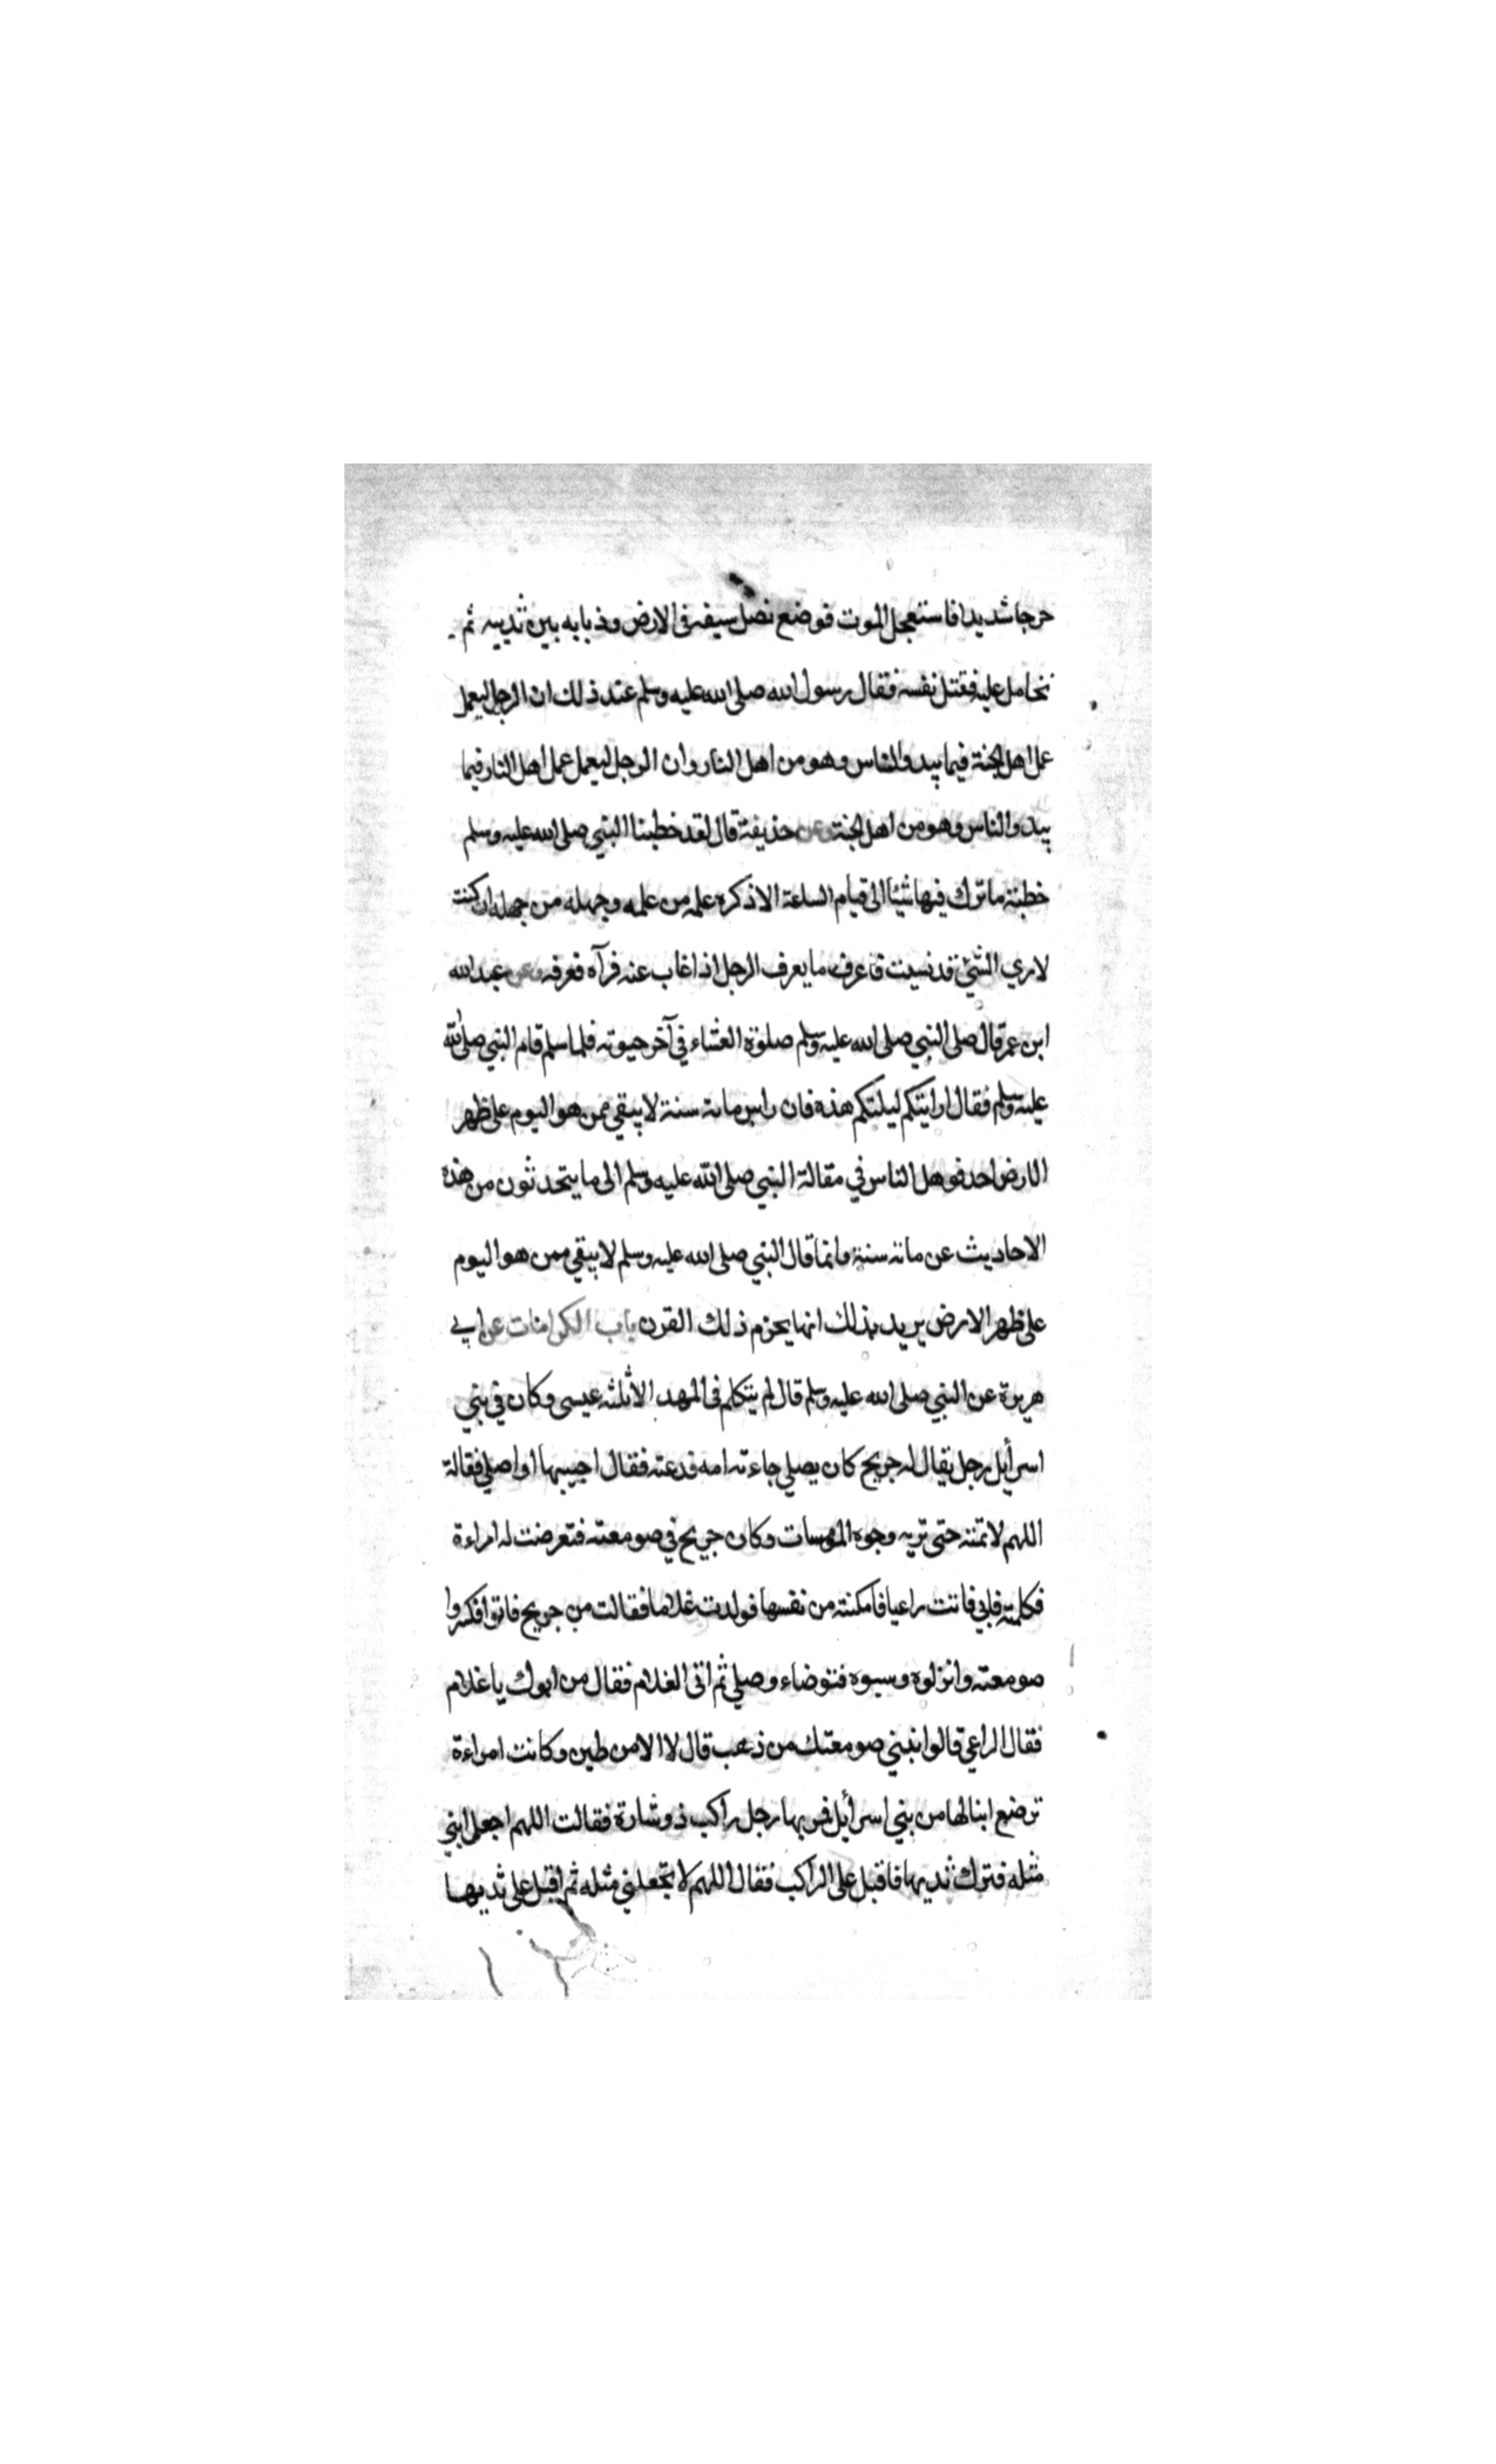 حرجا شديدا فاستعجل الموت فوضع نصل سيفه فى الارض وذبابه بين ثدييه ثم
تحامل عليه فقتل نفسه فقال رسول الله صلى الله عليه وسلم عند ذلك ان الرجل ليعمل
عمل اهل الجنة فيما يبدو للناس وهو من اهل النار وان الرجل ليعمل عمل اهل النار فيما
يبدو للناس وهو من اهل الجنة وعن حذيفة قال لقد خطبنا النبي صلى الله عليه وسلم
خطبة ما ترك فيها شيئا الى قيام الساعة الا ذكره علمه من علمه وجهله من جهله ان كنت
لاري الشئ قد نسيت فاعرف ما يعرف الرجل اذا غاب عنه فرآه فعرفه وعن عبد الله
ابن عمر قال صلى النبي صلى الله عليه وسلم صلوة العشاء في آخر حيوته فلما سلم قام النبي صلى الله
عليه وسلم فقال ارايتكم ليلتكم هذه فان راس مائة سنة لا يبقي ممن هو اليوم على ظهر
الارض احد فوهل الناس في مقالة النبي صلى الله عليه وسلم الى ما يتحدثون من هذه
الاحاديث عن مائة سنة وانما قال النبي صلى الله عليه وسلم لا يبقي ممن هو اليوم
على ظهر الارض يريد بذلك انها يخرم ذلك القرن باب الكرامات عن ابي
هريرة عن النبي صلى الله عليه وسلم قال لم يتكلم فى المهد الا ثلثه عيسى وكان في بني
اسرأيل رجل يقال له جريج كان يصلي جاءته امه فدعته فقال اجيبها او اصلي فقالة
اللهم لا تمته حتى تريه وجوه المومسات وكان جريج في صومعته فتعرضت له امراءة
فكلمته فابي فاتت راعيا فامكنته من نفسها فولدت غلاما فقالت من جريج فاتوا فكسروا
صومعته وانزلوه وسبوه فتوضاء وصلي ثم اتى الغلام فقال من ابوك يا غلام
فقال الراعي قالوا نبني صومعتك من ذهب قال لا الا من طين وكانت امراءة
ترضع ابنا لها من بني اسرأيل فمر بها رجل راكب ذو شارة فقالت اللهم اجعل ابني
مثله فترك ثديها فاقبل على الراكب فقال اللهم لا تجعلني مثله ثم اقبل على ثديها